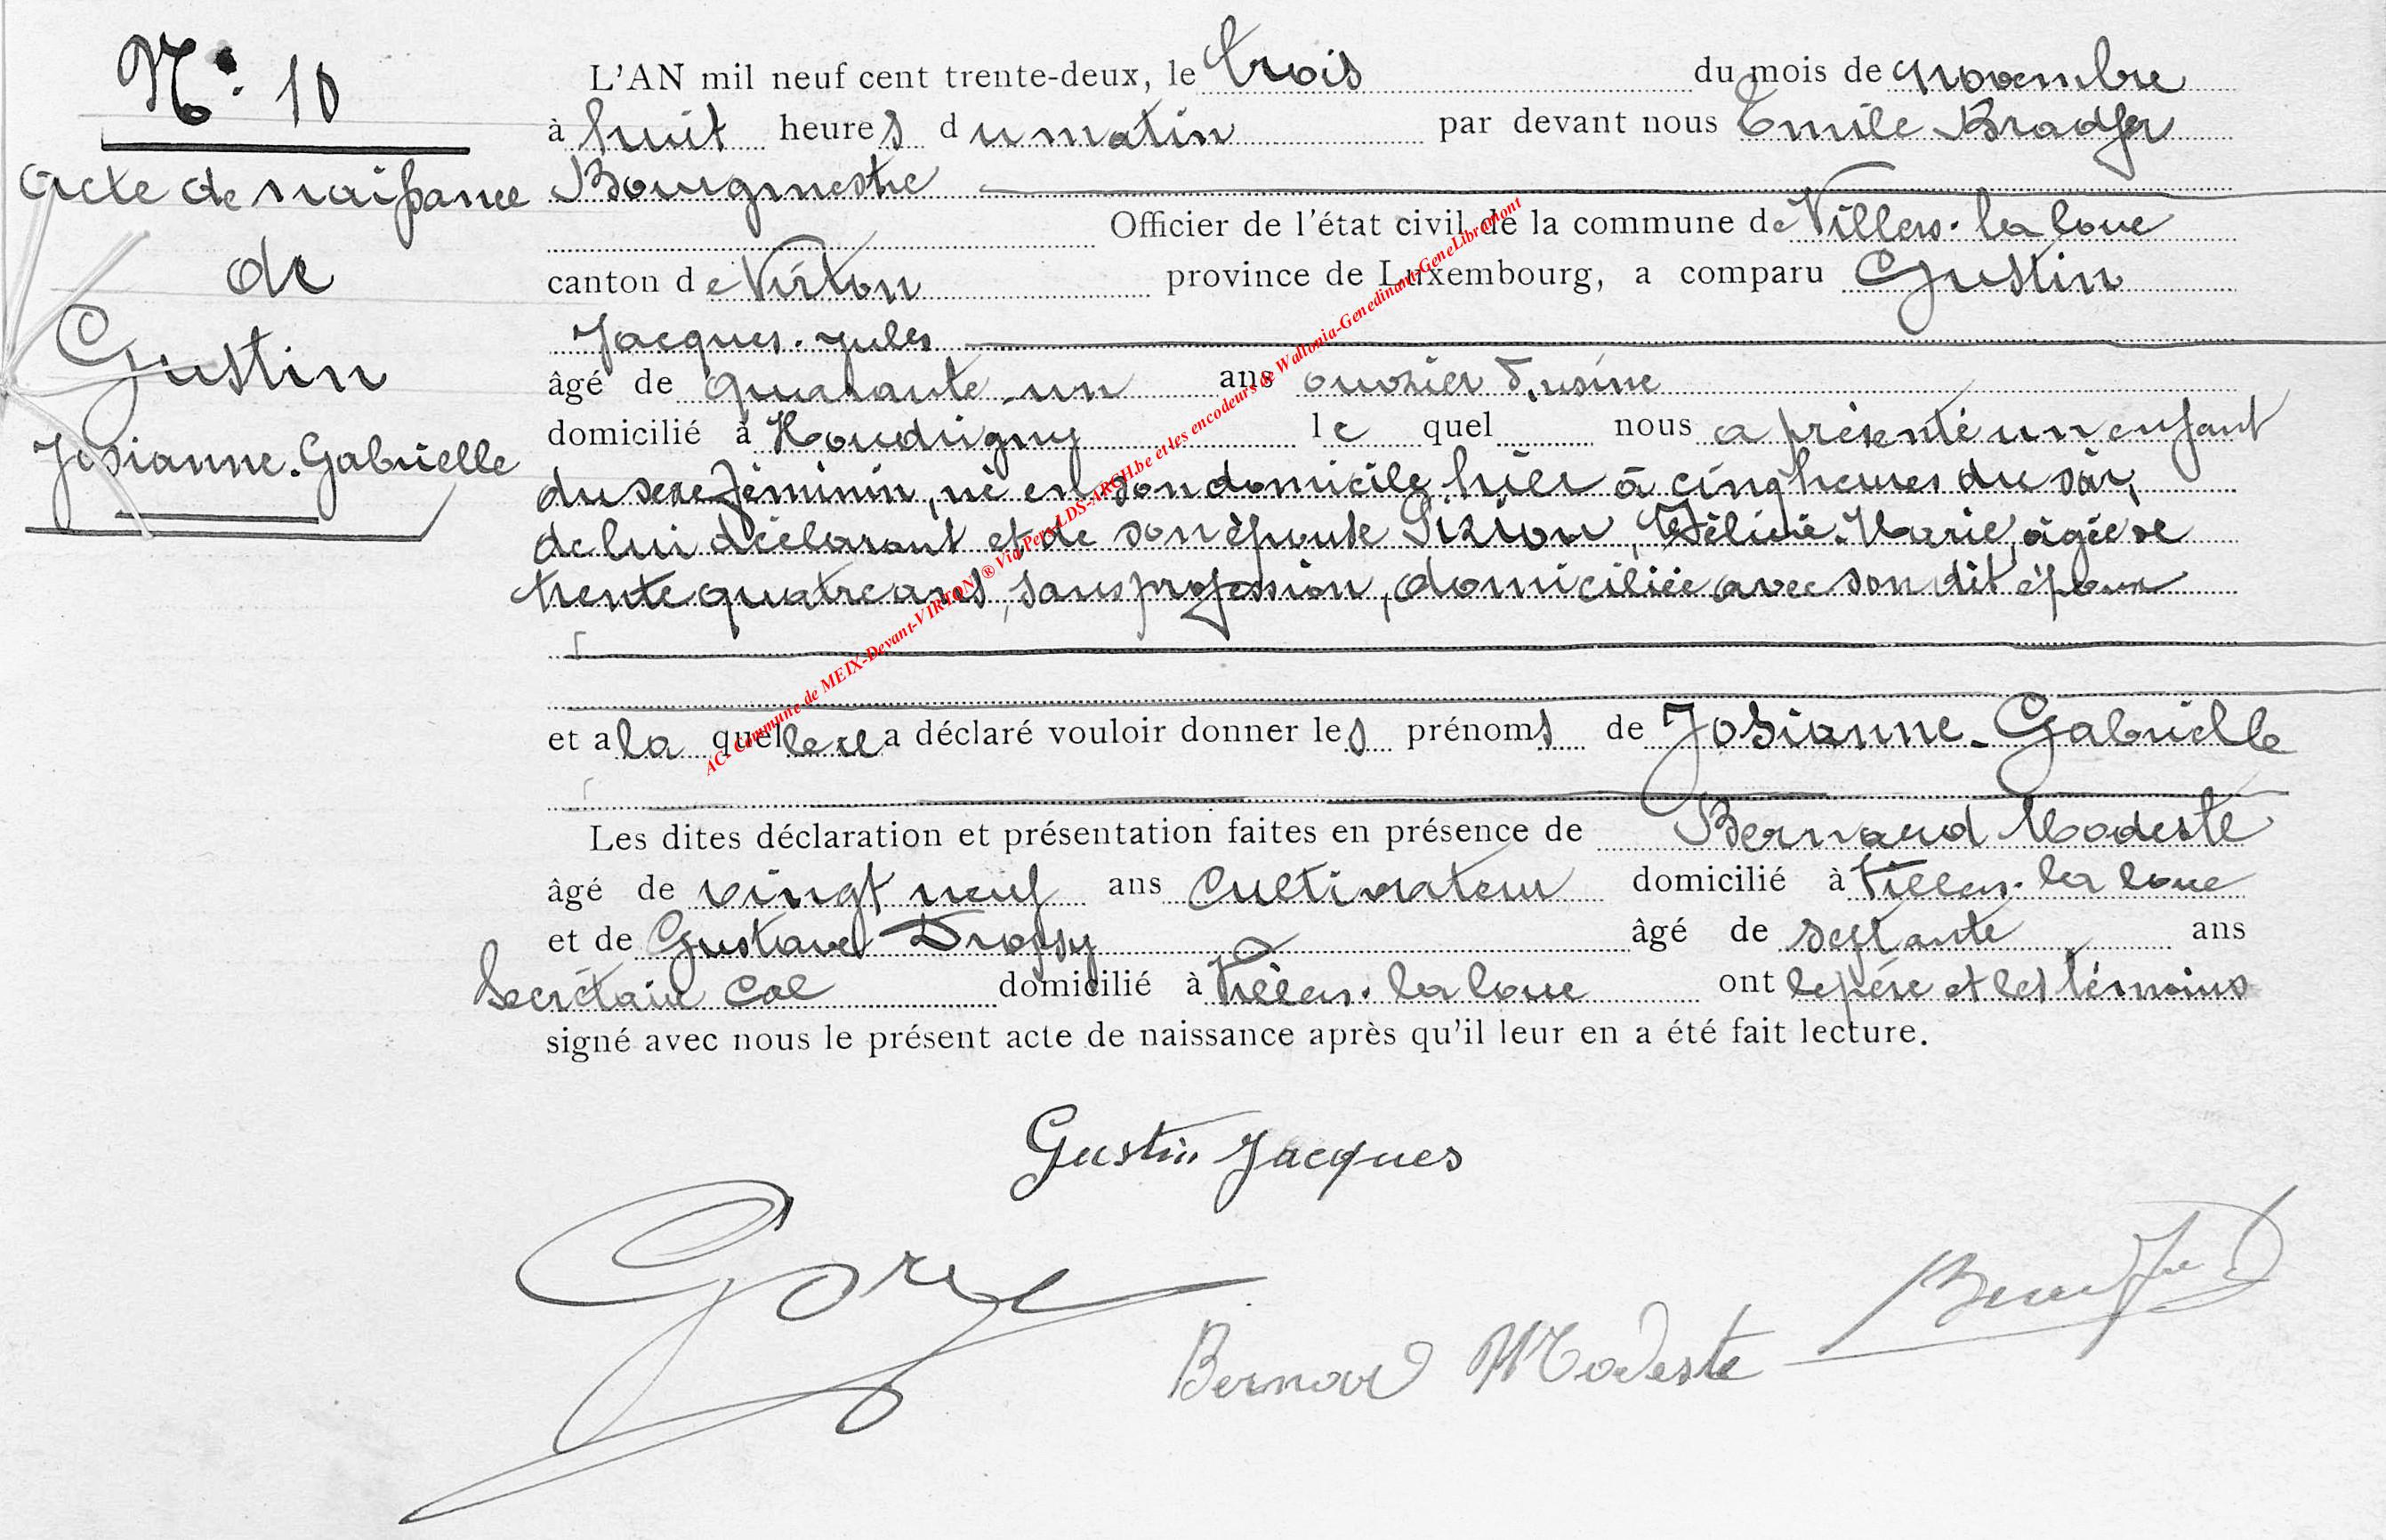 N° 10
Acte de naissance
de
Gustin
Josianne-Gabrielle
L'AN mil neuf cent trente-deux, le trois du mois de novembre
à huit heures du matin par devant nous Emile Bradfer
Bourgmestre
Officier de l'état civil de la commune de Villers-la loue
canton de Virton province de Luxembourg, a comparu Gustin
Jacques-Jules
âgé de quarante-un ans ouvrier d'usine
domicilié à Houdrigny lequel nous a présenté un enfant
du sexe féminin, né en son domicile hier à cinq heures du soir,
de lui déclarant et de son épouse Sizion, Félicie-Marie, âgée de
trente quatre ans, sans profession, domiciliée avec son dit époux
et a laquelle il a déclaré vouloir donner les prénoms de Josianne-Gabrielle
Les dites déclaration et présentation faites en présence de Bernard Modeste
âgé de vingt neuf ans cultivateur domicilié à Villers-la loue
et de Gustave Dropsy âgé de septante ans
Secrétaire cal domicilié à Villers-la loue ont le père et les témoins
signé avec nous le présent acte de naissance après qu'il leur en a été fait lecture.
Gustin Jacques
Bernard Modeste
AC. Commune de MEIX-Devant-VIRTON ® Via Pers-LDS-ARCH.be et les encodeurs de Wallonia-Genedinant-GeneLibramont